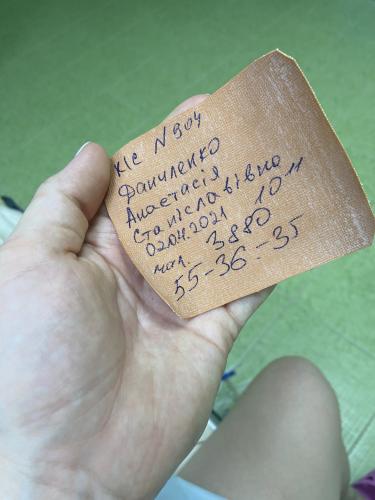 КІС N 904
Фанчленко
Анастасія
Станіславівна
02.04.2021 10 11
мал. 3880
55-36-35